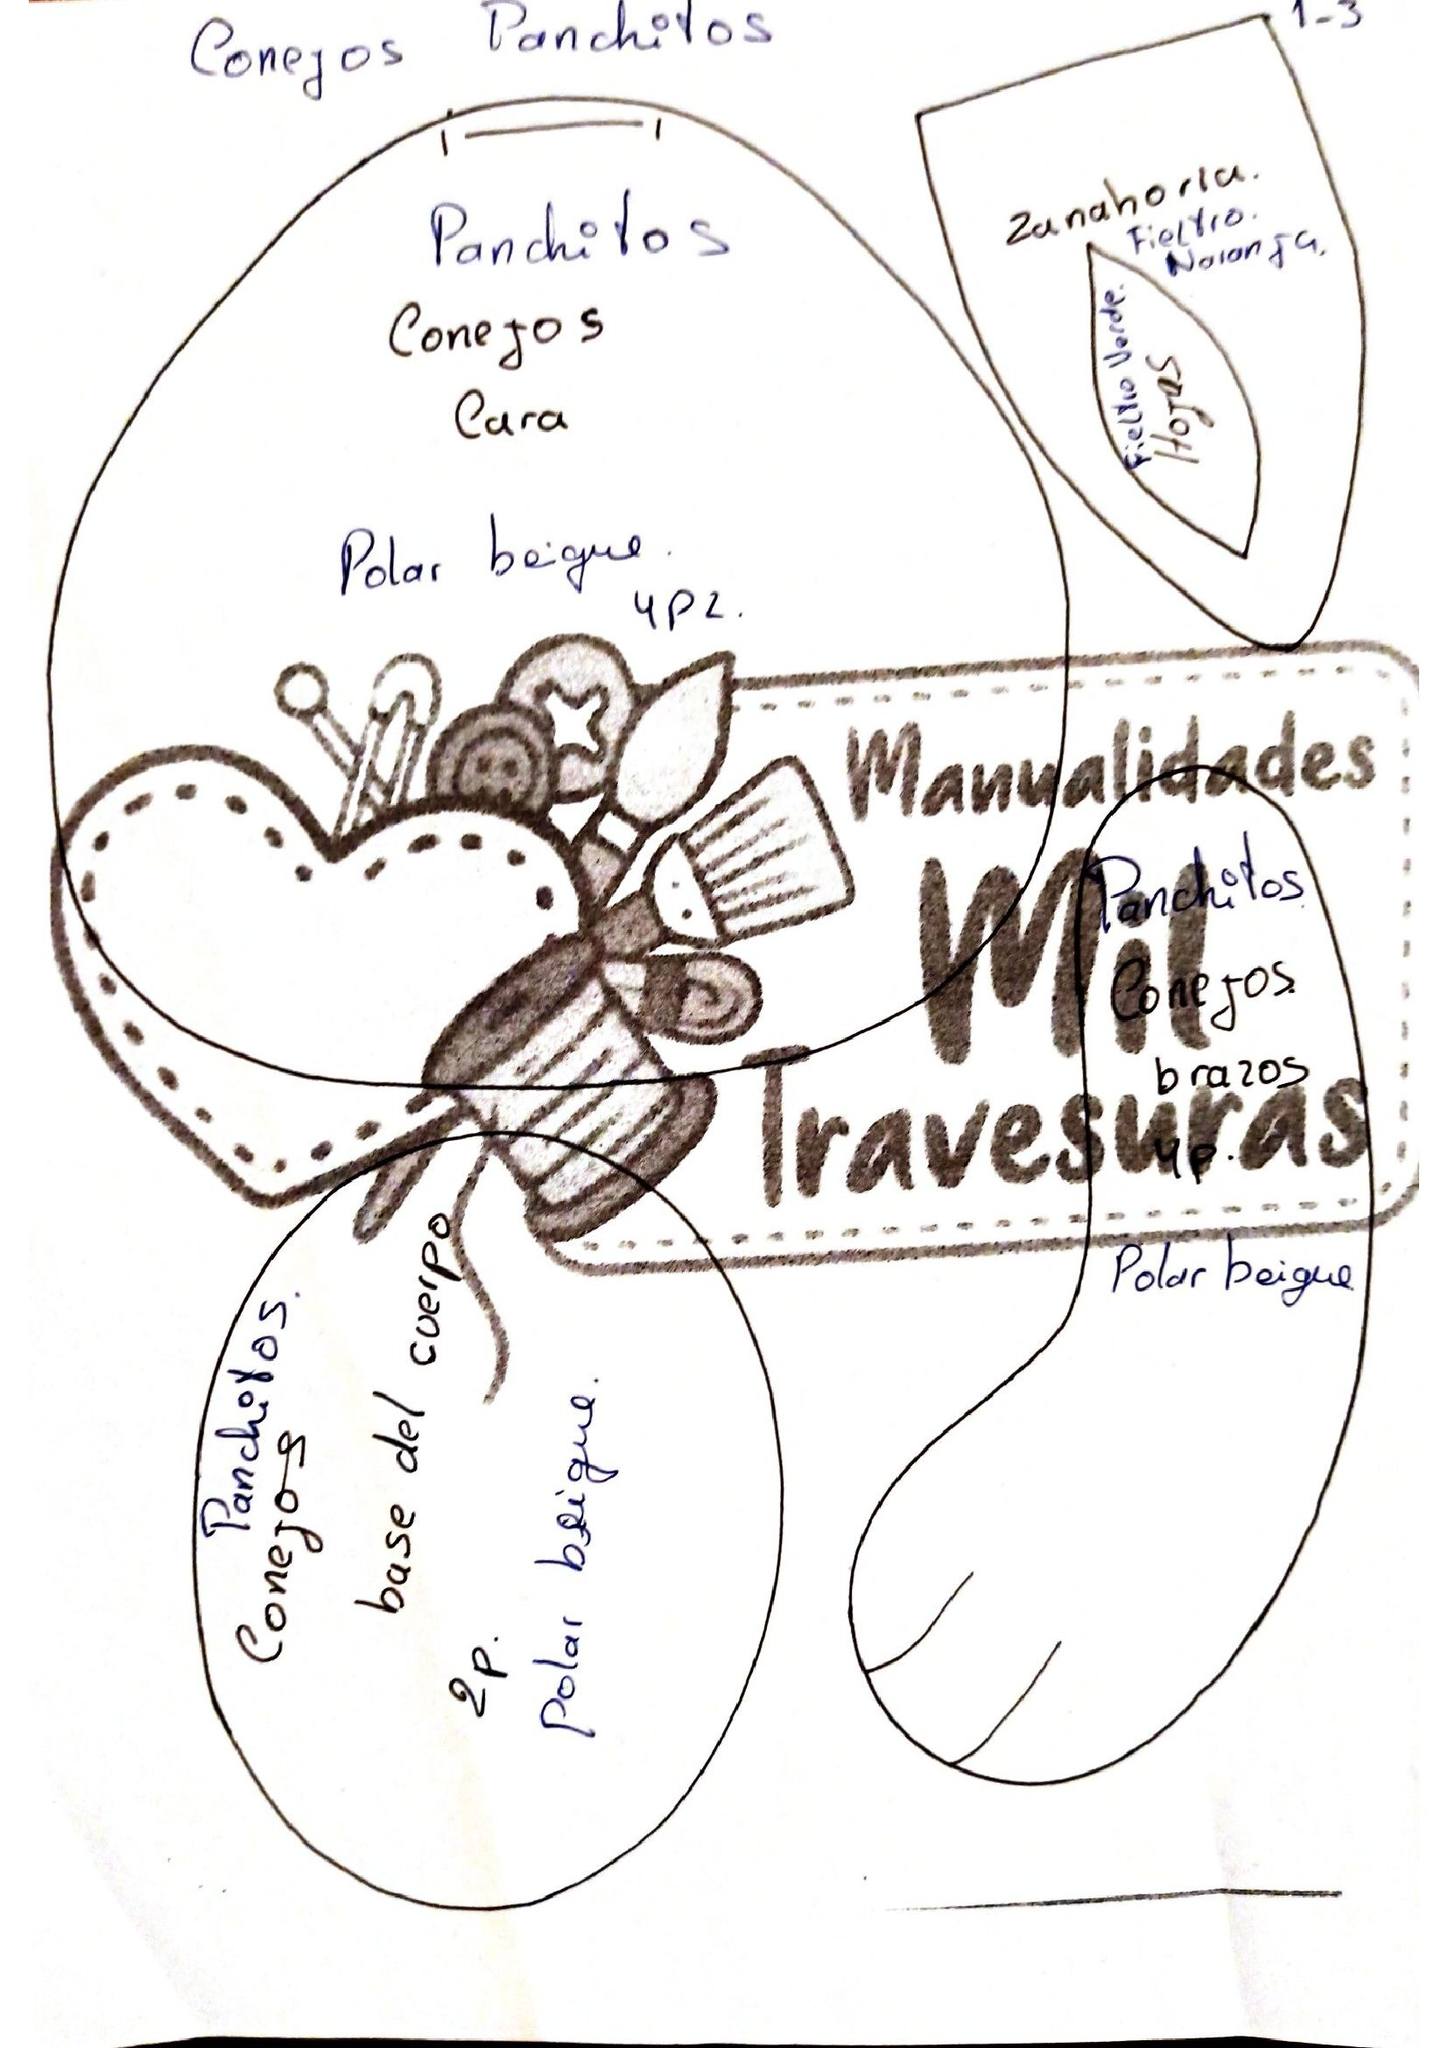 Conejos Panchitos
1-3
Panchitos
Conejos
Cara
Polar beigue.
4pz.
Zanahoria.
Fieltro.
Naranja.
Hojas
Fieltro Verde.
Manualidades
Mil
Travesuras
Panchitos
Conejos
brazos
4p.
Polar beigue
Panchitos.
Conejos
base del cuerpo
2p.
Polar beigue.